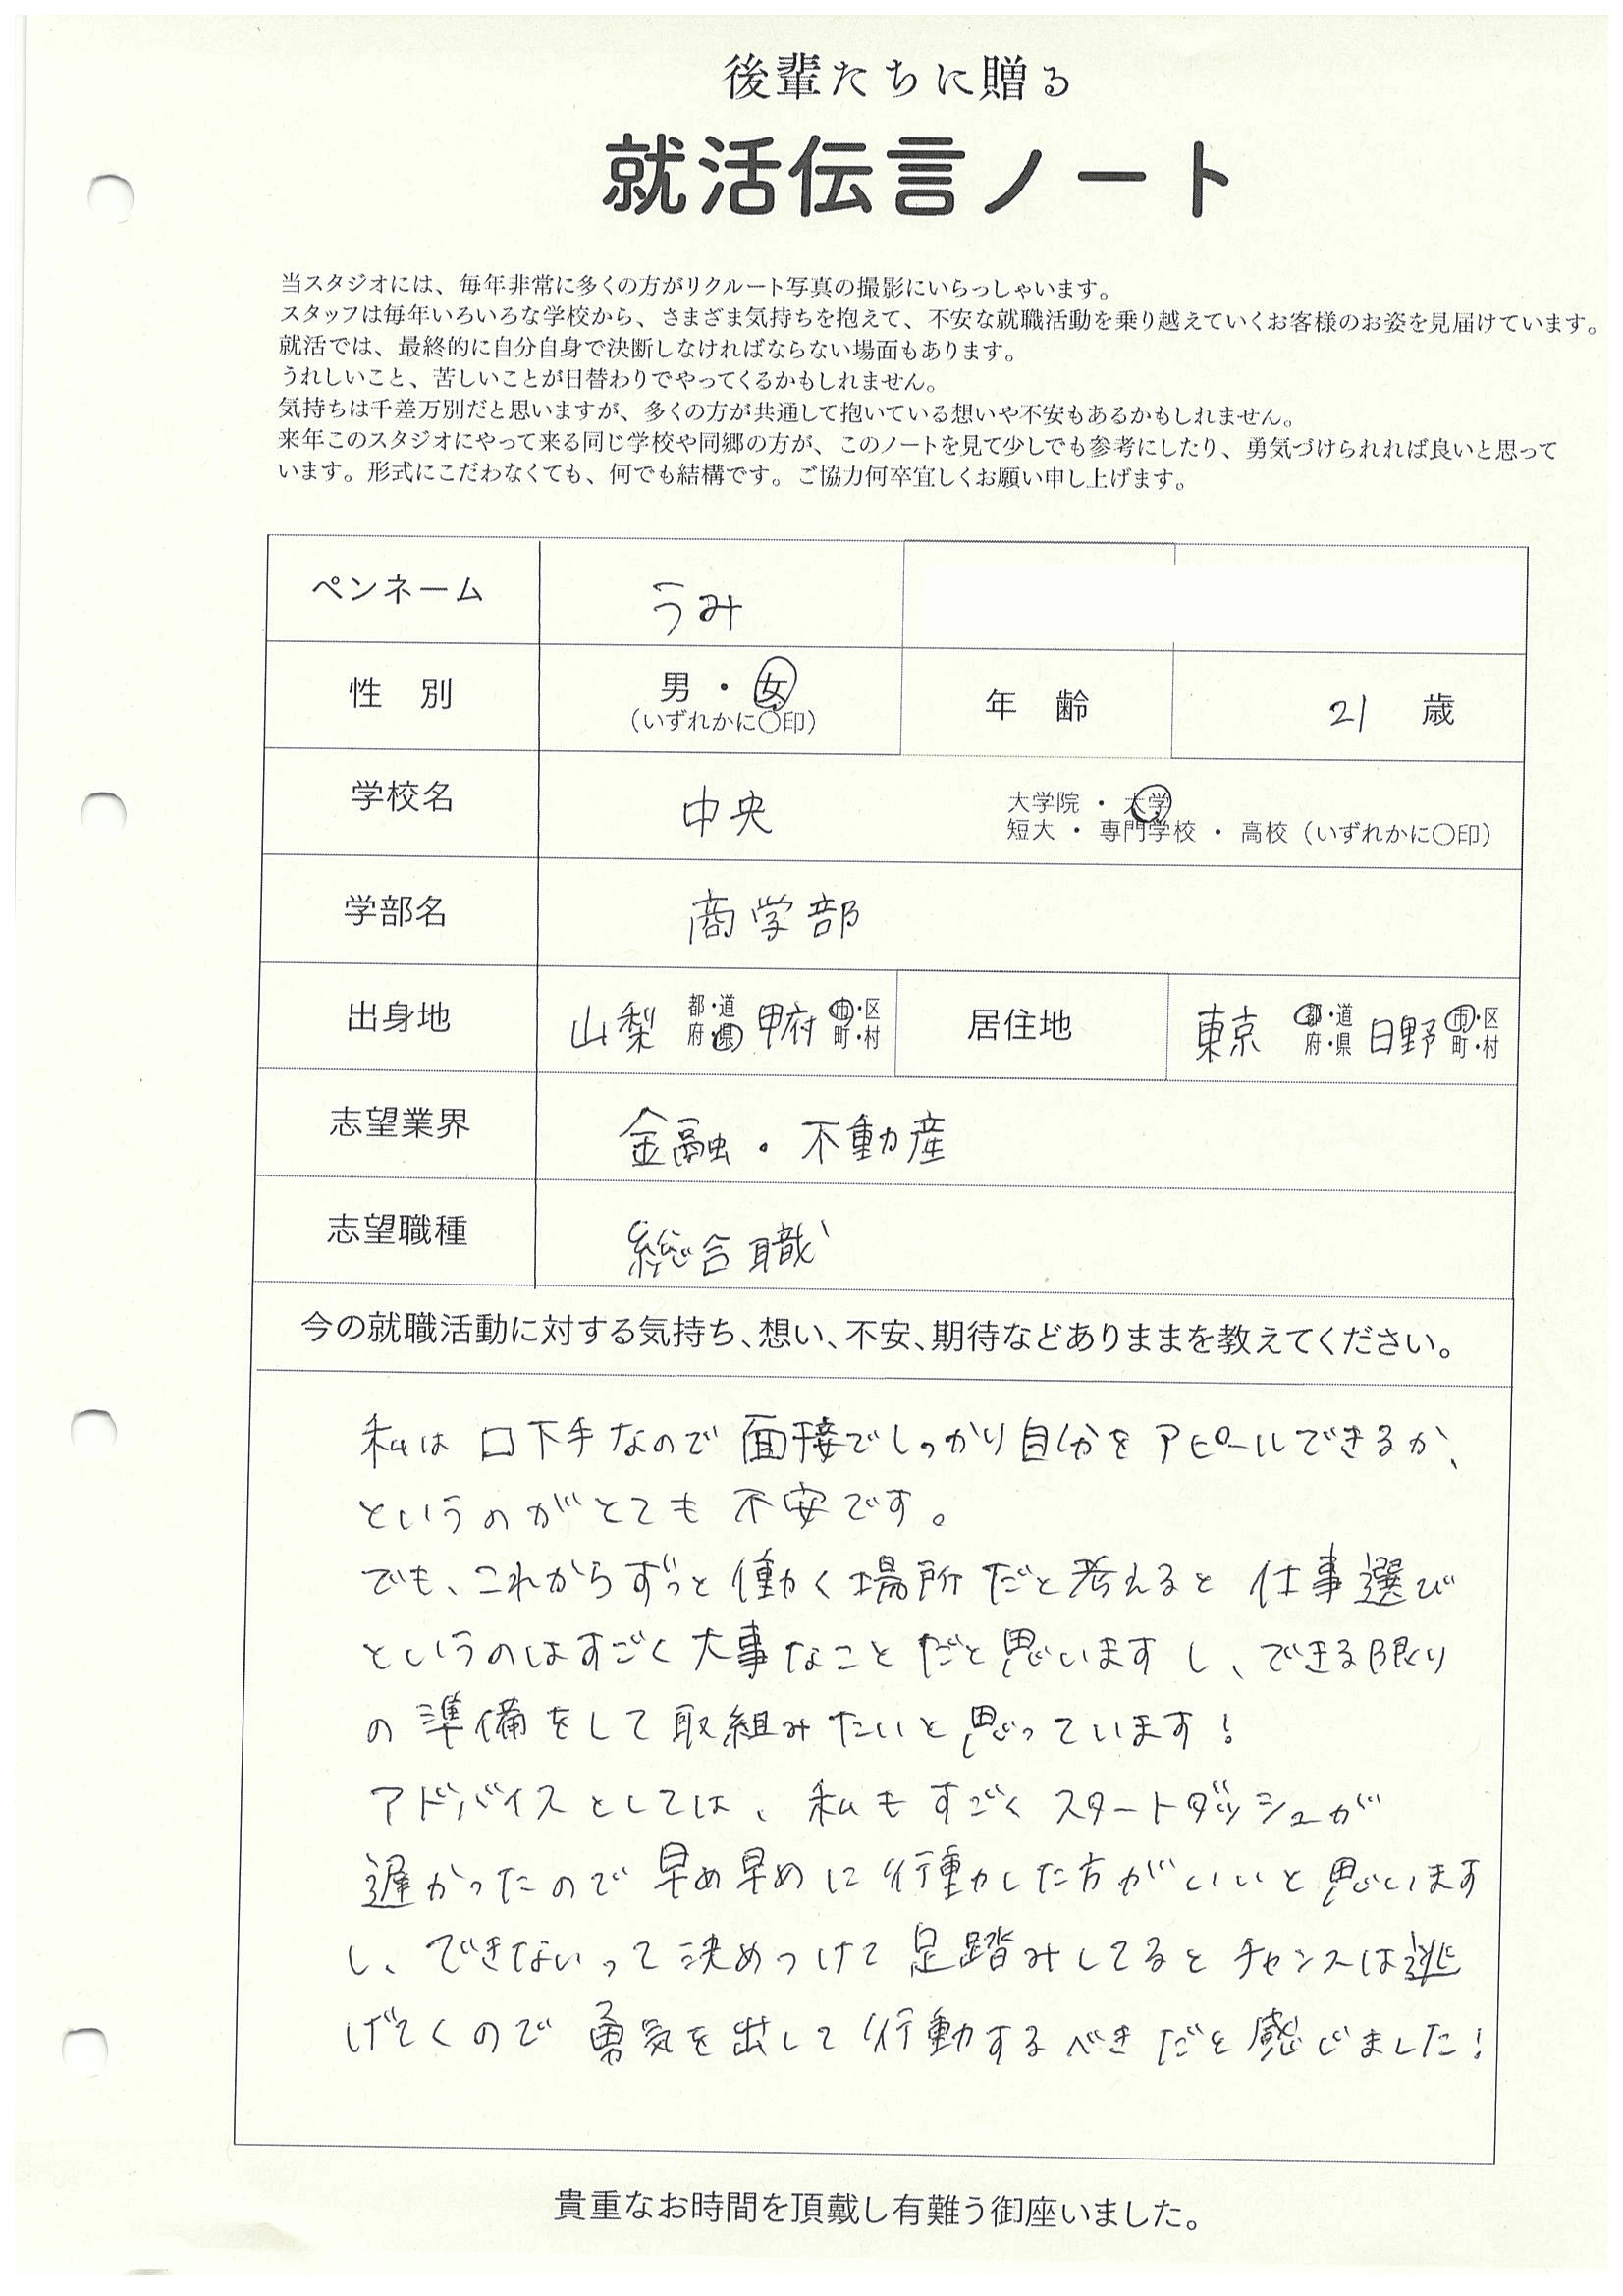 後輩たちに贈る
就活伝言ノート
当スタジオには、毎年非常に多くの方がリクルート写真の撮影にいらっしゃいます。
スタッフは毎年いろいろな学校から、さまざま気持ちを抱えて、不安な就職活動を乗り越えていくお客様のお姿を見届けています。
就活では、最終的に自分自身で決断しなければならない場面もあります。
うれしいこと、苦しいことが日替わりでやってくるかもしれません。
気持ちは千差万別だと思いますが、多くの方が共通して抱いている想いや不安もあるかもしれません。
来年このスタジオにやって来る同じ学校や同郷の方が、このノートを見て少しでも参考にしたり、勇気づけられれば良いと思って
います。形式にこだわなくても、何でも結構です。ご協力何卒宜しくお願い申し上げます。
ペンネーム うみ
性 別 男・女 (いずれかに○印) 年 齢 21 歳
学校名 中央 大学院・大学
短大・専門学校・高校(いずれかに○印)
学部名 商学部
出身地 山梨 都・道 府・県 甲府 市・区 町・村 居住地 東京 都・道 府・県 日野 市・区 町・村
志望業界 金融・不動産
志望職種 総合職
今の就職活動に対する気持ち、想い、不安、期待などありままを教えてください。
私は口下手なので面接でしっかり自分をアピールできるか、
というのがとても不安です。
でも、これからずっと働く場所だと考えると仕事選び
というのはすごく大事なことだと思いますし、できる限り
の準備をして取組みたいと思っています!
アドバイスとしては、私もすごくスタートダッシュが
遅かったので早め早めに行動した方がいいと思います
し、できないって決めつけて足踏みしてるとチャンスは逃
げてくので勇気を出して行動するべきだと感じました!
貴重なお時間を頂戴し有難う御座いました。